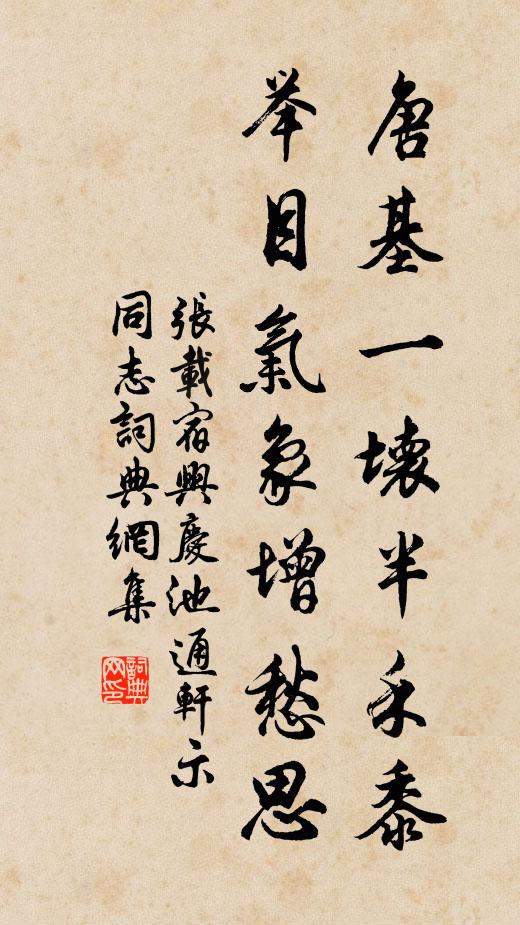 唐基一壞半禾黍
举目氣象增愁思
張載宿興慶池通軒示
同志詞典網集
詞典
网印